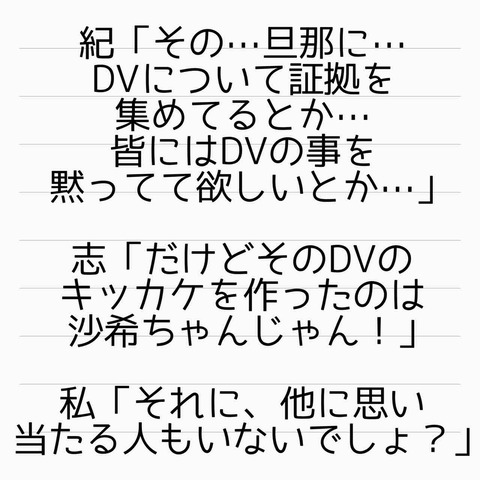 紀「その…旦那に…
DVについて証拠を
集めてるとか…
皆にはDVの事を
黙ってて欲しいとか…」
志「だけどそのDVの
キッカケを作ったのは
沙希ちゃんじゃん！」
私「それに、他に思い
当たる人もいないでしょ？」